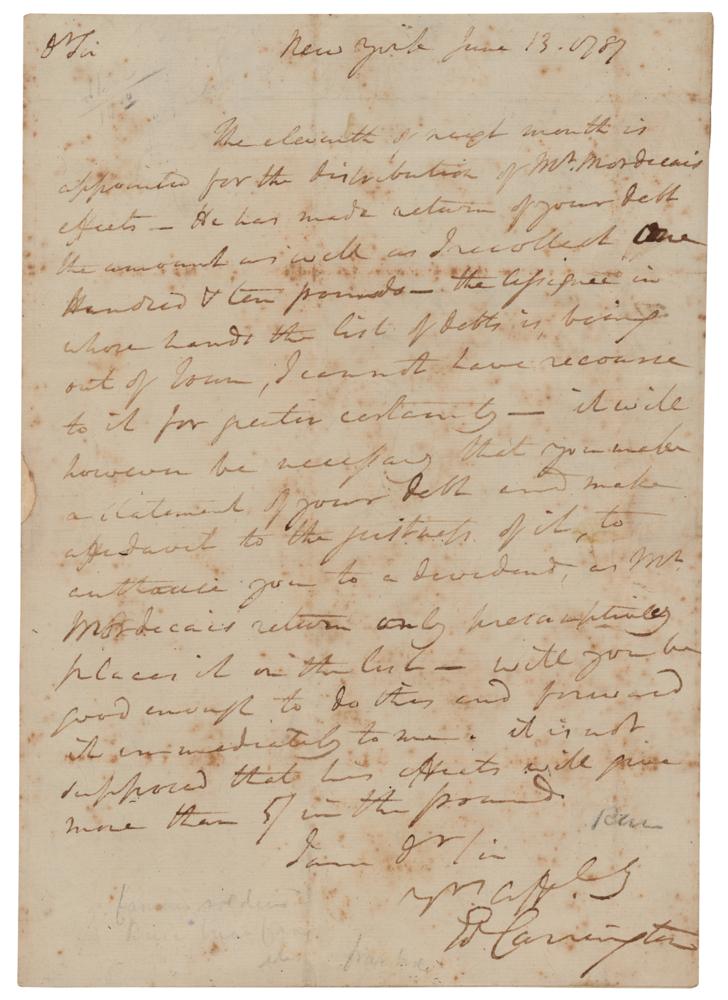 Dr Sir New York June 13. 1787
The eleventh of next month is
appointed for the distribution of Mr. Mordecais
effects — He has made return of your debt
the amount as well as I recollect, One
Hundred & ten pounds — the assignee in
whose hands the list of debts is, being
out of Town, I cannot have recourse
to it for greater certainty — it will
however be necessary that you make
a statement of your debt and make
affidavit to the justness of it, to
authorise you to a dividend, as Mr.
Mordecais return only presumptively
places it on the list — will you be
good enough to do this and forward
it immediately to me. it is not
supposed that his effects will give
more than 5/ in the pound
I am Dr Sir
yr. affly
Ed. Carrington